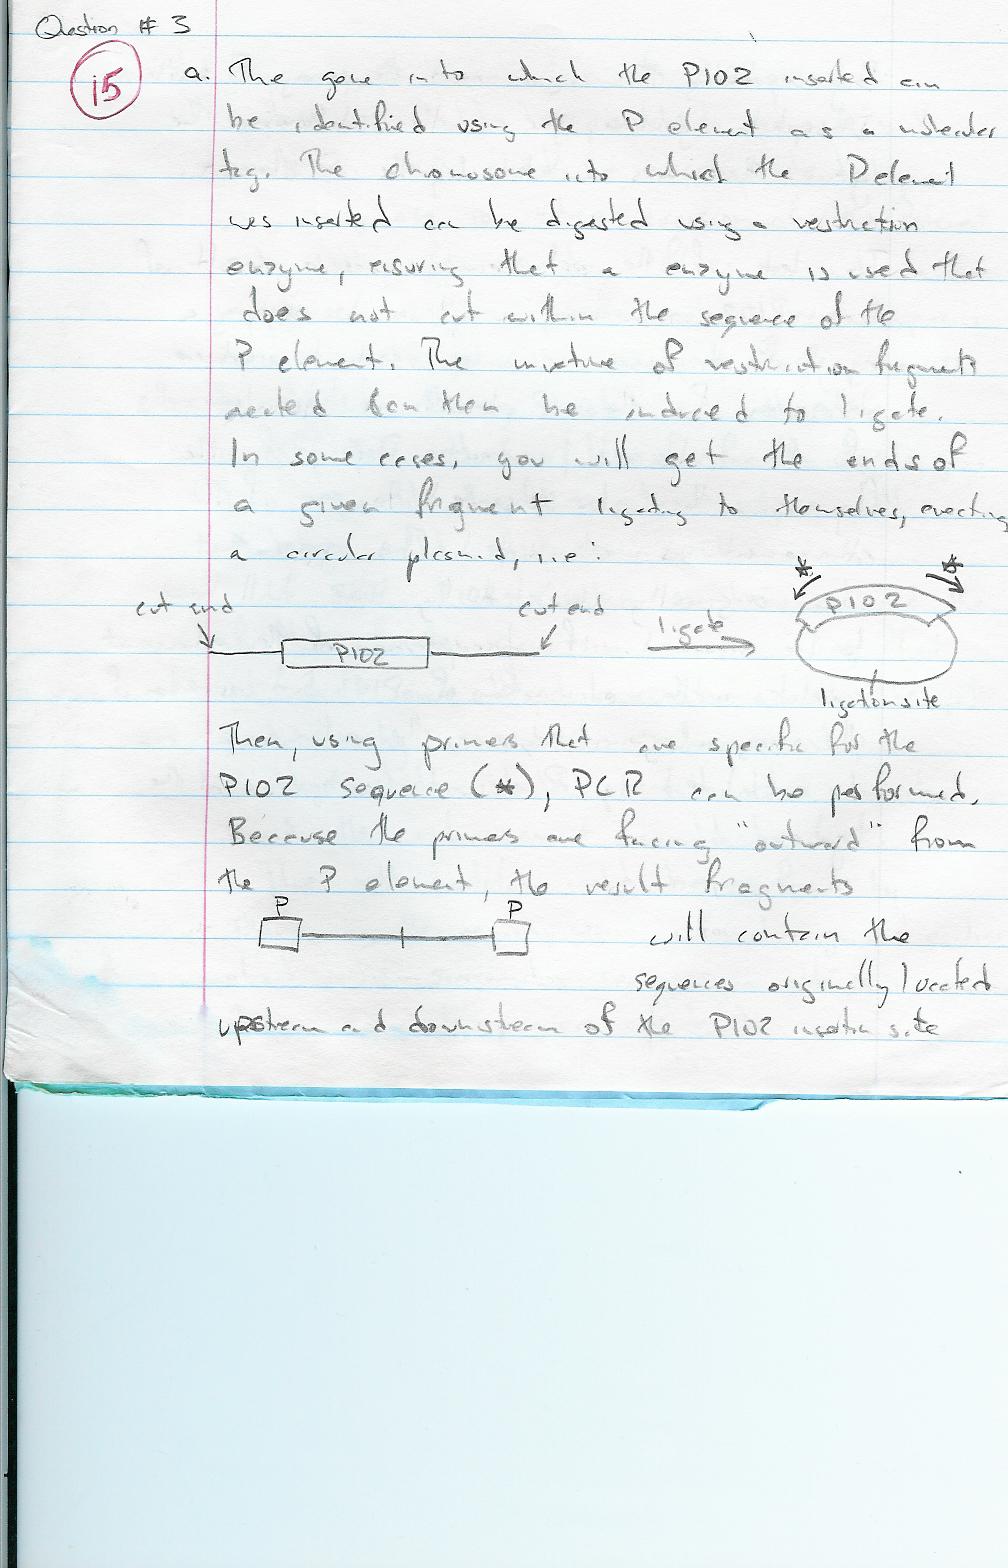 Question # 3
15
a. The gene into which the P102 inserted can
be identified using the P element as a molecular
tag. The chromosome into which the P element
was inserted can be digested using a restriction
enzyme, ensuring that a enzyme is used that
does not cut within the sequence of the
P element. The mixture of restriction fragments
created can then be induced to ligate.
In some cases, you will get the ends of
a given fragment ligating to themselves, creating
a circular plasmid, i.e:
cut end
cut end
P102
ligate
* *
P102
ligation site
Then, using primers that are specific for the
P102 sequence (*), PCR can be performed.
Because the primers are facing "outward" from
the P element, the result fragments
P P
will contain the
sequences originally located
upstream and downstream of the P102 insertion site